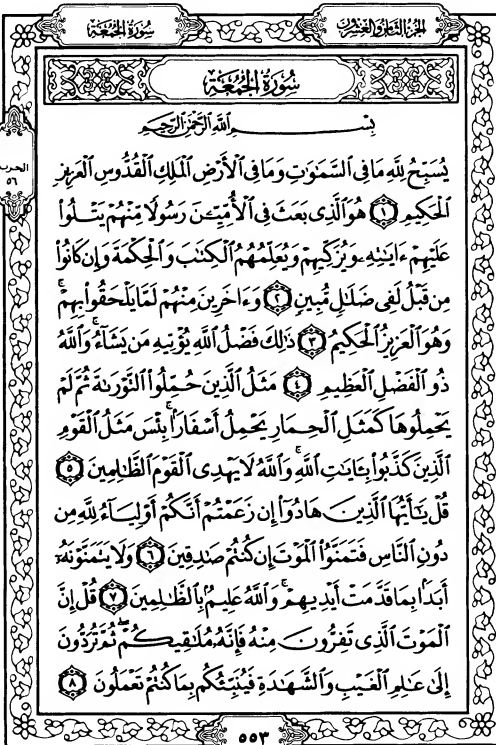 سُورَةُ الجُمُعَةِ
الجزء الثامن والعشرون
سُورَةُ الجُمُعَةِ
بِسْمِ ٱللَّهِ ٱلرَّحْمَٰنِ ٱلرَّحِيمِ
يُسَبِّحُ لِلَّهِ مَا فِي ٱلسَّمَٰوَٰتِ وَمَا فِي ٱلْأَرْضِ ٱلْمَلِكِ ٱلْقُدُّوسِ ٱلْعَزِيزِ
ٱلْحَكِيمِ ١ هُوَ ٱلَّذِي بَعَثَ فِي ٱلْأُمِّيِّـۧنَ رَسُولًا مِّنْهُمْ يَتْلُوا۟
عَلَيْهِمْ ءَايَٰتِهِۦ وَيُزَكِّيهِمْ وَيُعَلِّمُهُمُ ٱلْكِتَٰبَ وَٱلْحِكْمَةَ وَإِن كَانُوا۟
مِن قَبْلُ لَفِي ضَلَٰلٍ مُّبِينٍ ٢ وَءَاخَرِينَ مِنْهُمْ لَمَّا يَلْحَقُوا۟ بِهِمْۚ
وَهُوَ ٱلْعَزِيزُ ٱلْحَكِيمُ ٣ ذَٰلِكَ فَضْلُ ٱللَّهِ يُؤْتِيهِ مَن يَشَآءُۚ وَٱللَّهُ
ذُو ٱلْفَضْلِ ٱلْعَظِيمِ ٤ مَثَلُ ٱلَّذِينَ حُمِّلُوا۟ ٱلتَّوْرَىٰةَ ثُمَّ لَمْ
يَحْمِلُوهَا كَمَثَلِ ٱلْحِمَارِ يَحْمِلُ أَسْفَارًۢاۚ بِئْسَ مَثَلُ ٱلْقَوْمِ
ٱلَّذِينَ كَذَّبُوا۟ بِـَٔايَٰتِ ٱللَّهِۚ وَٱللَّهُ لَا يَهْدِي ٱلْقَوْمَ ٱلظَّٰلِمِينَ ٥
قُلْ يَٰٓأَيُّهَا ٱلَّذِينَ هَادُوٓا۟ إِن زَعَمْتُمْ أَنَّكُمْ أَوْلِيَآءُ لِلَّهِ مِن
دُونِ ٱلنَّاسِ فَتَمَنَّوُا۟ ٱلْمَوْتَ إِن كُنتُمْ صَٰدِقِينَ ٦ وَلَا يَتَمَنَّوْنَهُۥٓ
أَبَدًۢا بِمَا قَدَّمَتْ أَيْدِيهِمْۚ وَٱللَّهُ عَلِيمٌۢ بِٱلظَّٰلِمِينَ ٧ قُلْ إِنَّ
ٱلْمَوْتَ ٱلَّذِي تَفِرُّونَ مِنْهُ فَإِنَّهُۥ مُلَٰقِيكُمْۖ ثُمَّ تُرَدُّونَ
إِلَىٰ عَٰلِمِ ٱلْغَيْبِ وَٱلشَّهَٰدَةِ فَيُنَبِّئُكُم بِمَا كُنتُمْ تَعْمَلُونَ ٨
الحزب
٥٦
٥٥٣